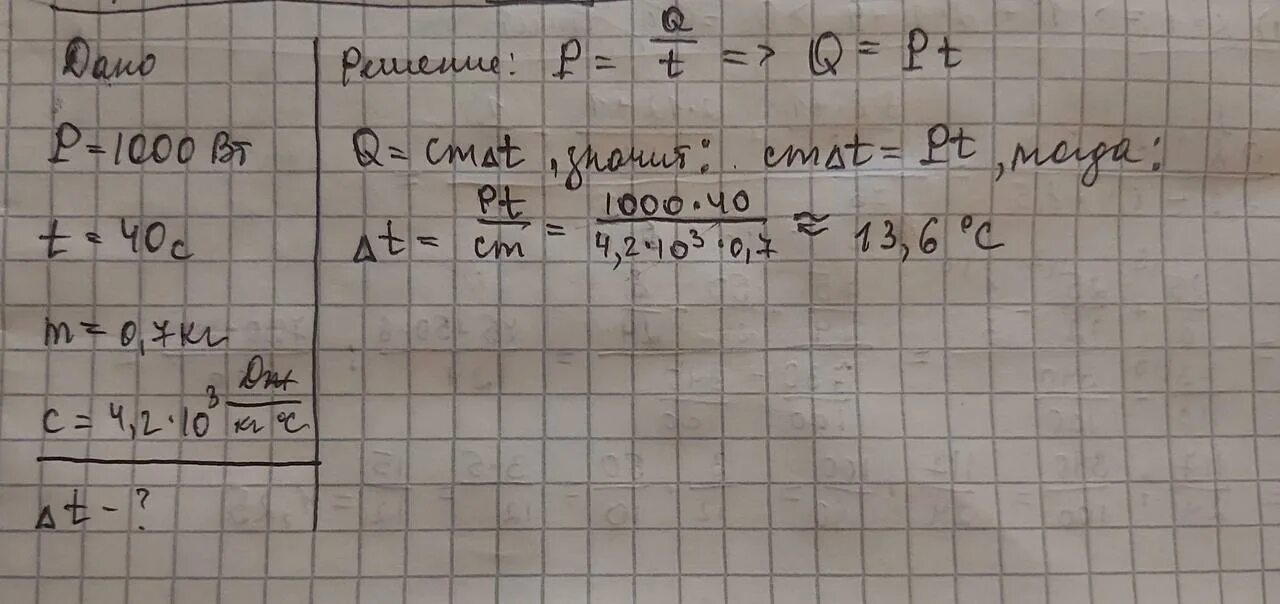 Дано
P = 1000 Вт
t = 40 с
m = 0,7 кг
c = 4,2·10³ Дж/кг °C
Δt - ?
Решение: P = Q/t => Q = Pt
Q = cmΔt, значит: cmΔt = Pt, тогда:
Δt = Pt/cm = 1000·40/4,2·10³·0,7 ≈ 13,6 °C